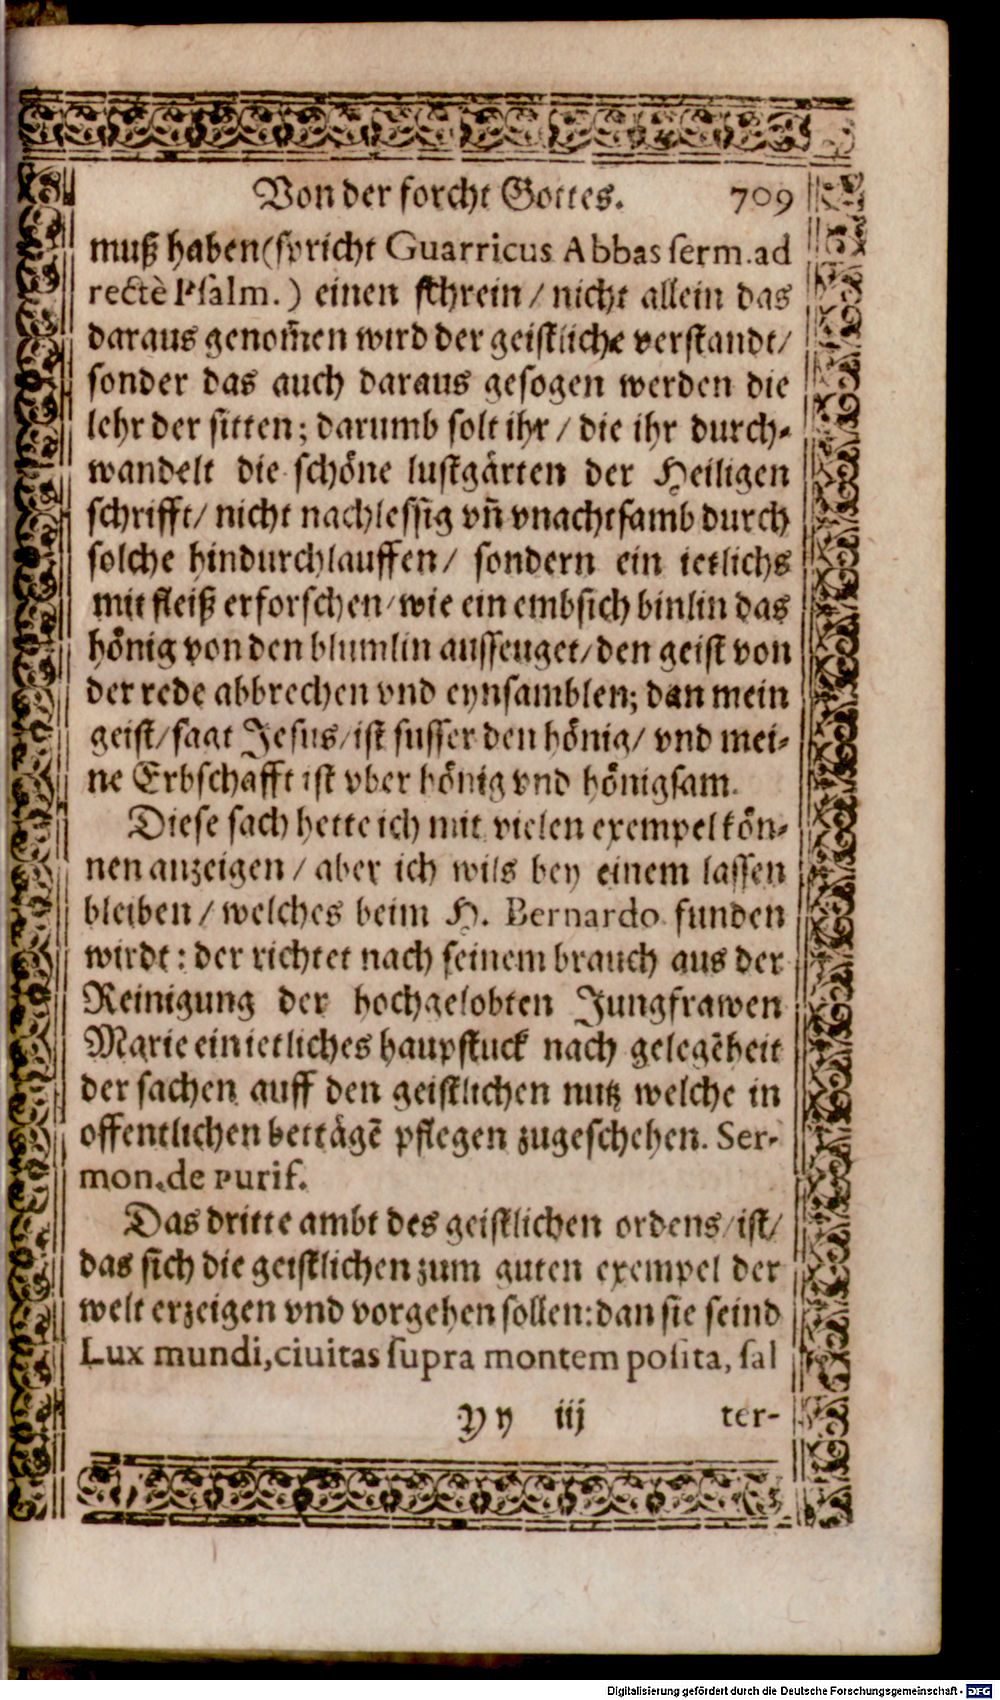 Von der forcht Gottes. 709
muß haben (spricht Guarricus Abbas serm. ad
rectè Psalm.) einen schrein / nicht allein das
daraus genom̃en wird der geistliche verstandt/
sonder das auch daraus gesogen werden die
lehr der sitten; darumb solt ihr / die ihr durch-
wandelt die schöne lustgärten der Heiligen
schrifft/ nicht nachlessig vñ vnachtsamb durch
solche hindurchlauffen/ sondern ein ietlichs
mit fleiß erforschen/ wie ein embsich binlin das
hönig von den blumlin aussenget/ den geist von
der rede abbrechen vnd eynsamblen; dan mein
geist/ sagt Jesus/ ist susser den hönig/ vnd mei-
ne Erbschafft ist vber hönig vnd hönigsam.
Diese sach hette ich mit vielen exempel kön-
nen anzeigen / aber ich wils bey einem lassen
bleiben / welches beim H. Bernardo funden
wirdt: der richtet nach seinem brauch aus der
Reinigung der hochgelobten Jungfrawen
Marie ein ietliches haupstuck nach gelegẽheit
der sachen auff den geistlichen nutz welche in
offentlichen bettägẽ pflegen zugeschehen. Ser-
mon. de Purif.
Das dritte ambt des geistlichen ordens/ ist/
das sich die geistlichen zum guten exempel der
welt erzeigen vnd vorgehen sollen: dan sie seind
Lux mundi, ciuitas supra montem posita, sal
Yy iij ter-
Digitalisierung gefördert durch die Deutsche Forschungsgemeinschaft - DFG